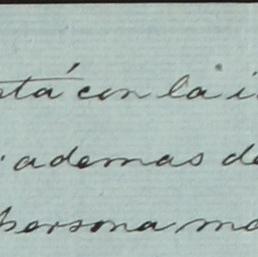 está con la i
ademas de
persona ma